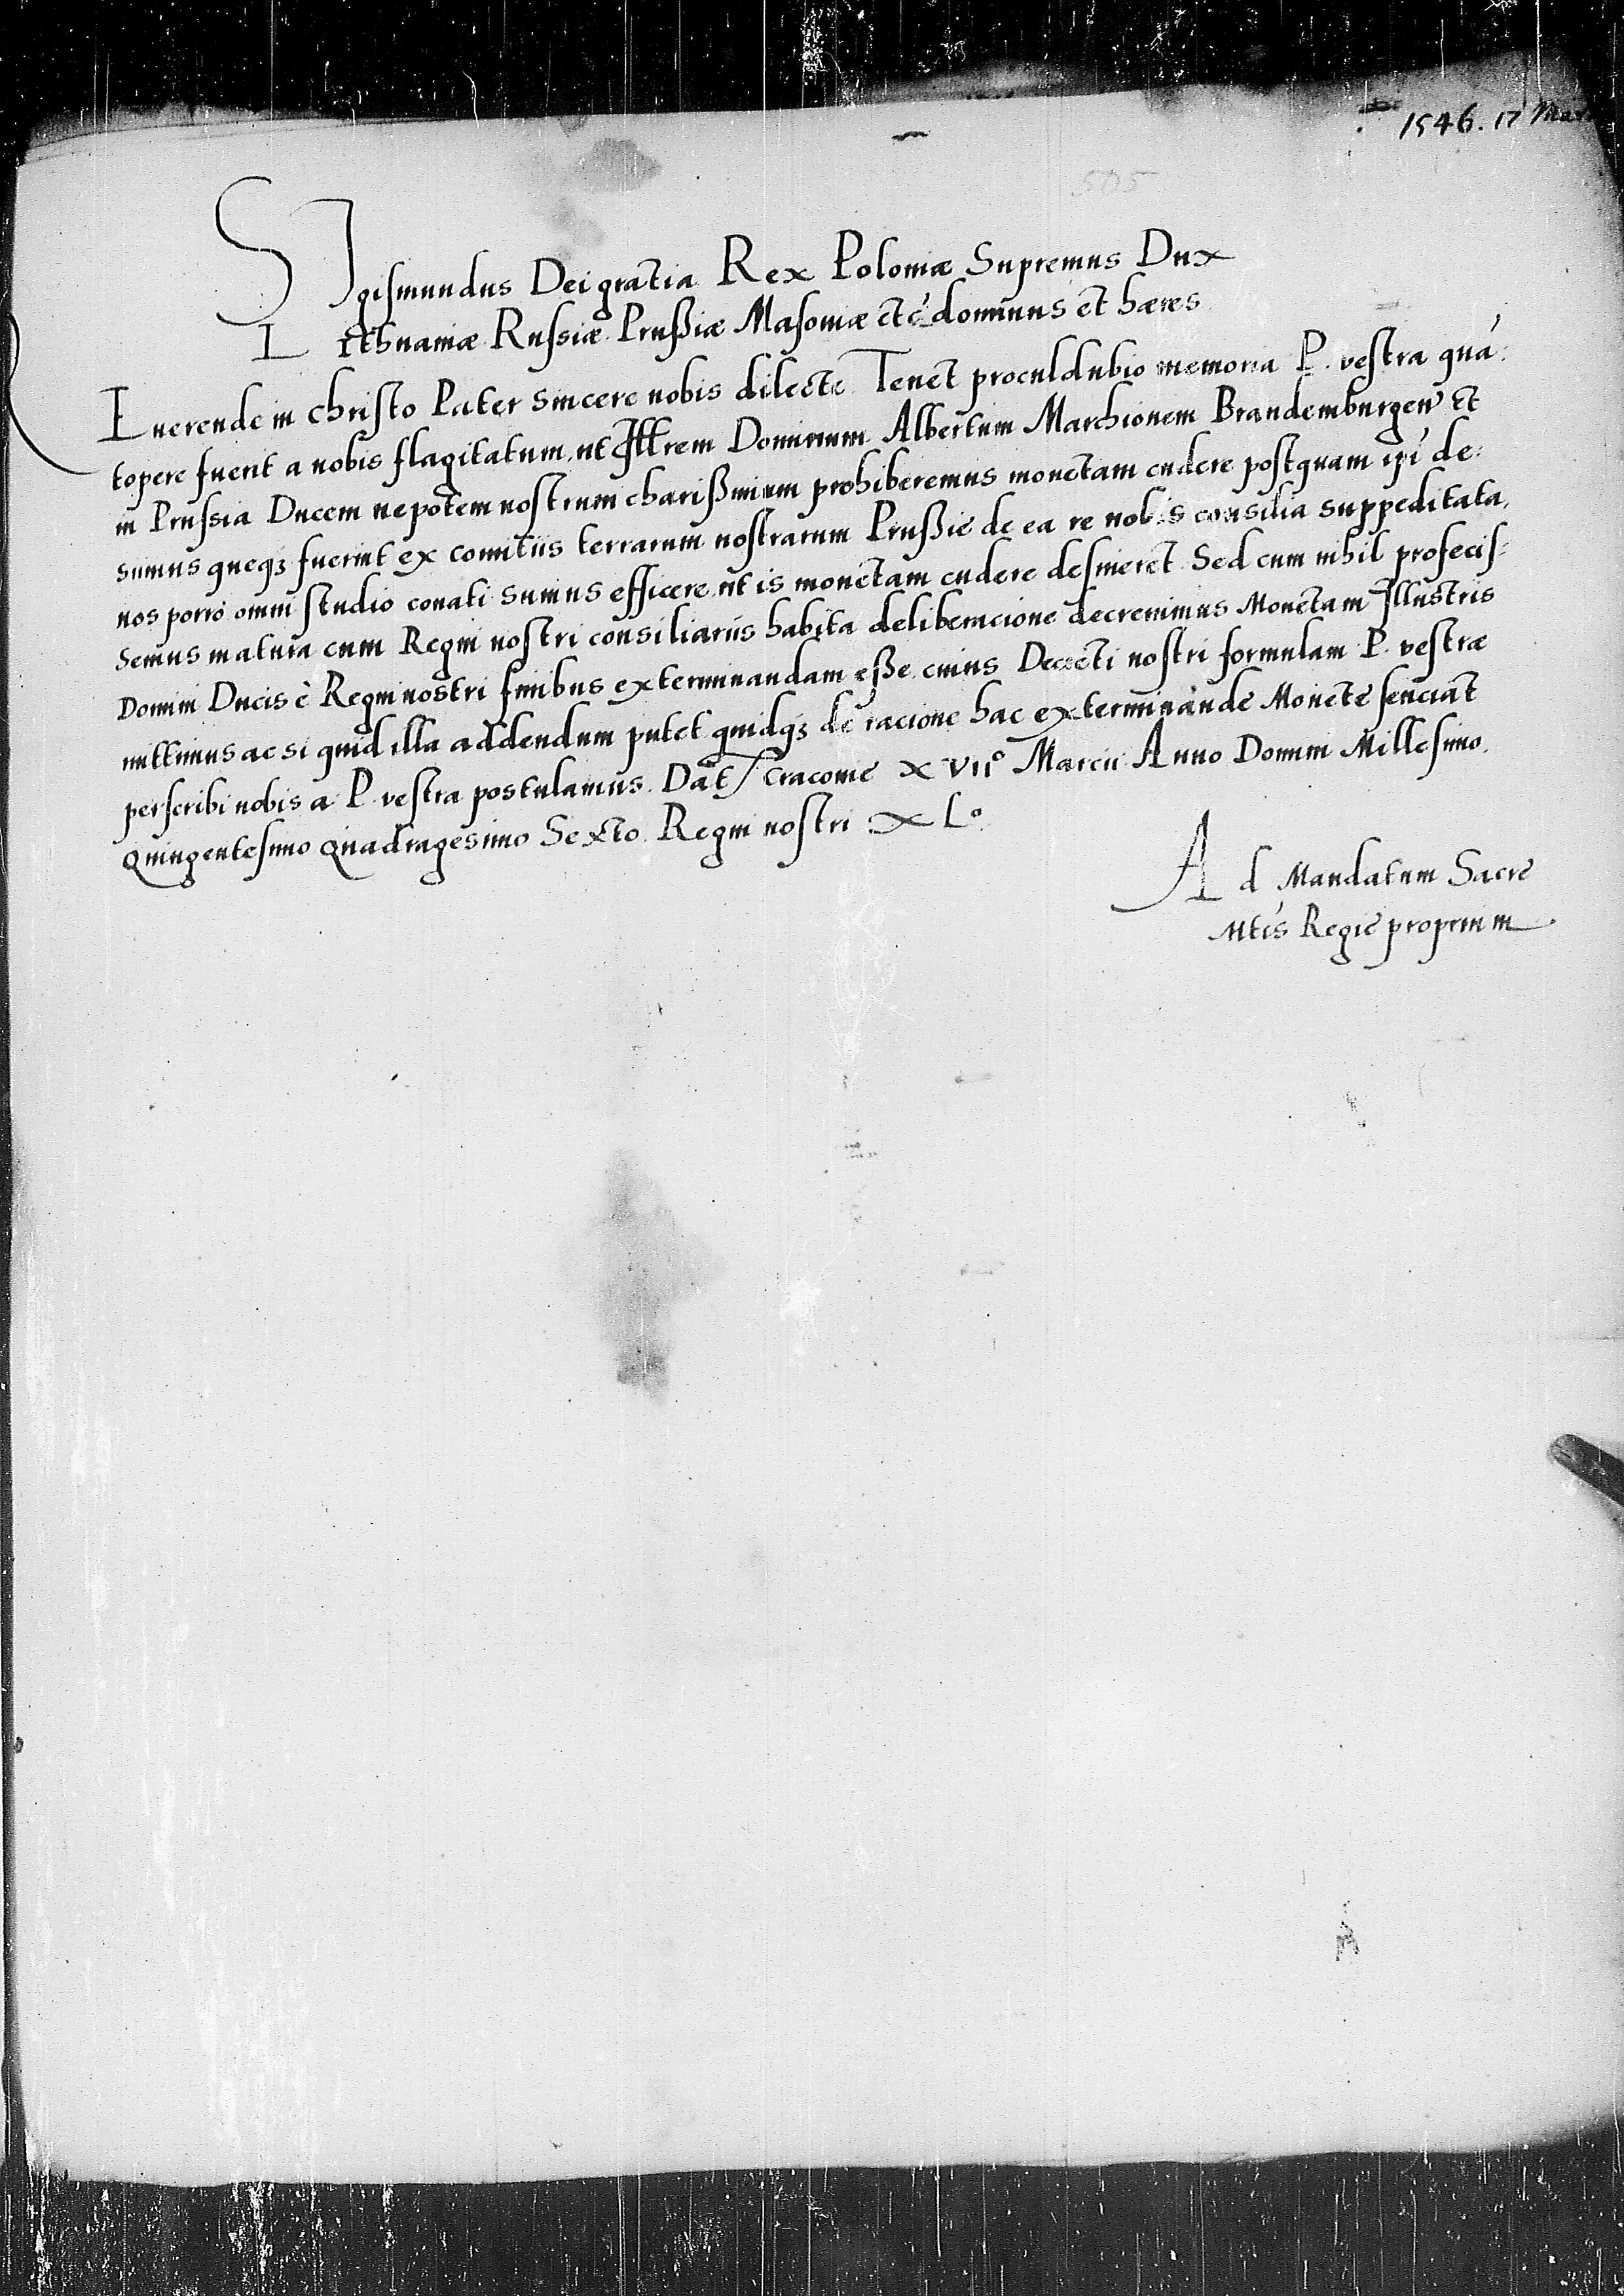 1546. 17 Mar
505
SIgismundus Dei gratia Rex Poloniæ Supremus Dux
Lithuaniæ Russiæ Prußiæ Masoviæ etc̃ dominus et hæres
Reuerende in Christo Pater sincere nobis dilecte. Tenet proculdubio memoria P. vestra quā:
topere fuerit a nobis flagitatum, ut Illrem Dominum Albertum Marchionem Brandemburgen̄ et
in Prussia Ducem nepotem nostrum charißimum prohiberemus monetam cudere postquam ipī de:
sumus queqȝ fuerint ex comitiis terrarum nostrarum Prußie de ea re nobis consilia suppeditata.
nos porrò omni studio conati sumus efficere, ut is monetam cudere desineret. Sed cum nihil profecis:
semus matura cum Regni nostri consiliariis habita deliberacione decrevimus Monetam Illustris
Domini Ducis è Regni nostri finibus exterminandam eße. cuius Decreti nostri formulam P. vestræ
mittimus ac si quid illa addendum putet quidqȝ de racione hac exterminande Monete senciat
perscribi nobis a P. vestra postulamus. Dat̃ Cracovie XVII° Marcii Anno Domini Millesimo.
Quingentesimo Quadragesimo Sexto. Regni nostri XL°
Ad Mandatum Sacre
Mtis Regie proprium